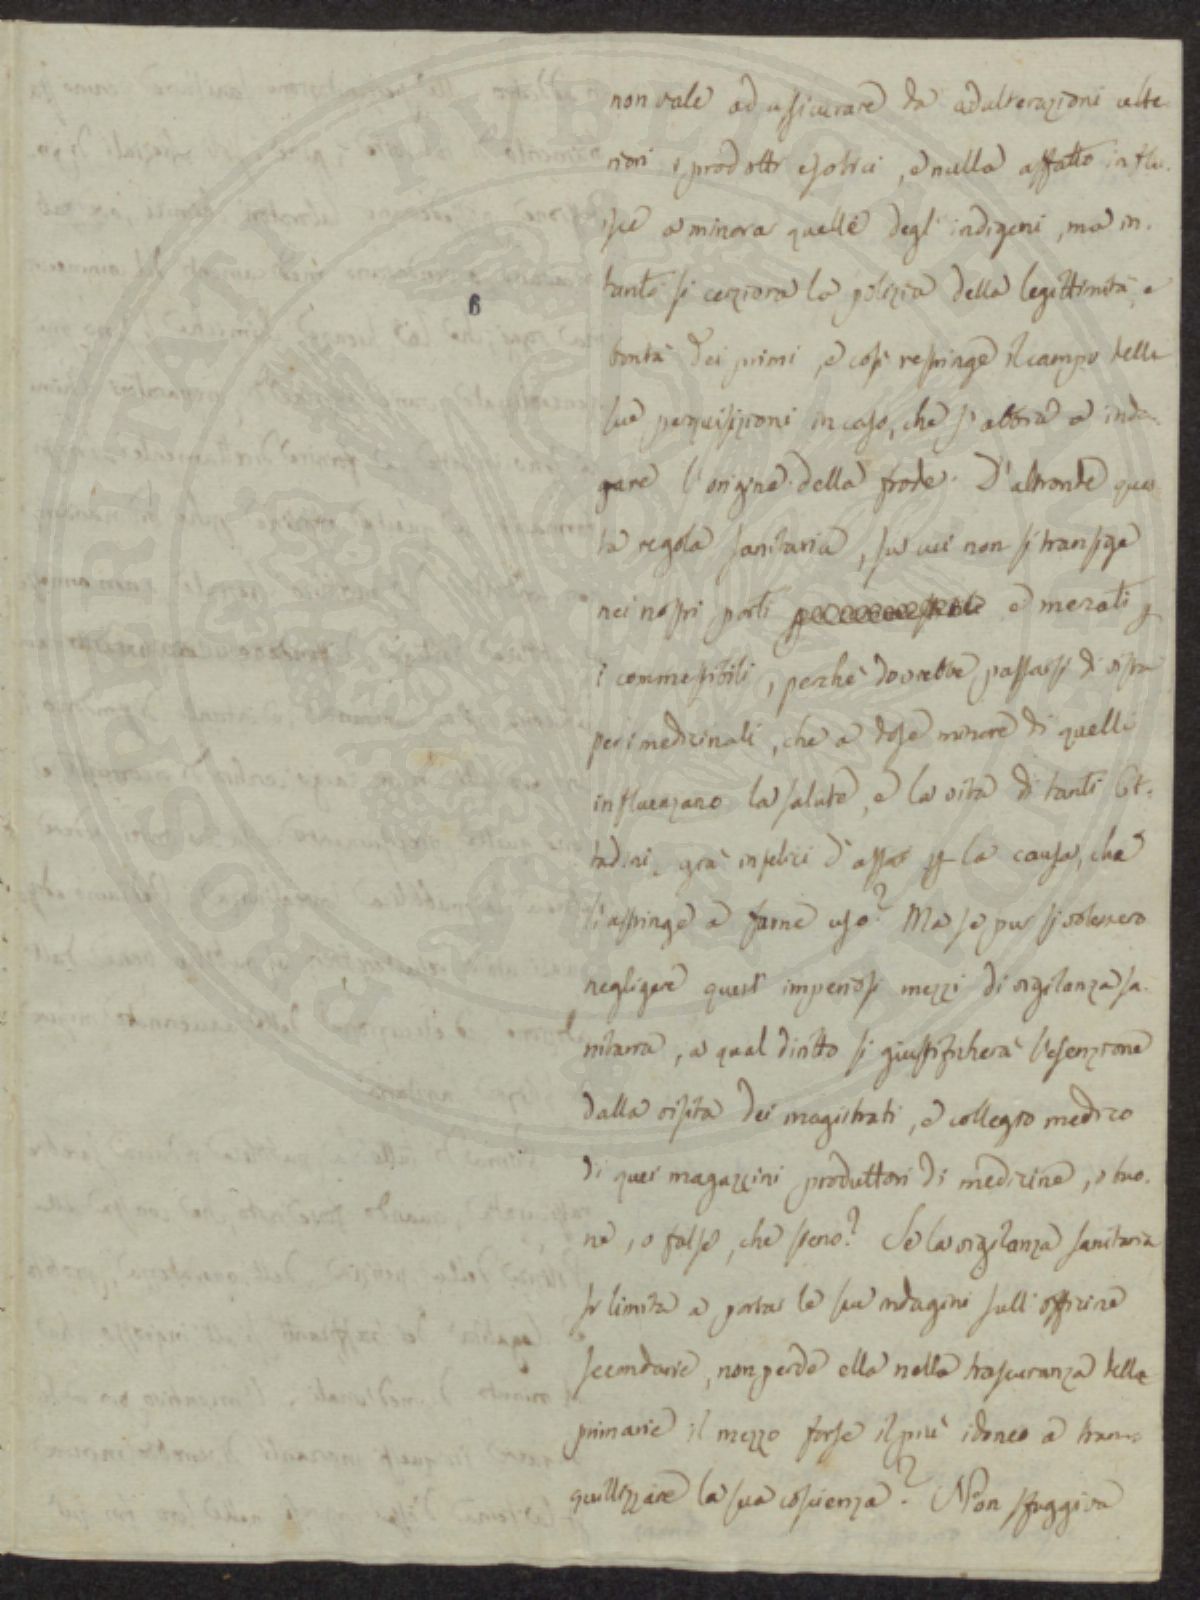 non vale ad assicurare da adulterazioni ulte-
riori i prodotti esotici, e nulla affatto influ-
isce a minorar quelle degl' indigeni, ma in-
tanto si cerziora la polizia della legittimità, e
bontà dei primi, e così restringe il campo delle
sue perquisizioni in caso, che s' abbia a inda-
gare l' origine della frode. D' altronde ques-
ta regola sanitaria, su cui non si transige
nei nostri porti e mercati p
i commestibili, perchè dovrebbe passarsi di vista
pei medicinali, che a dose minore di quelli
influenzano la salute, e la vita di tanti Cit-
tadini, già infelici d' assai p la causa, che
li astringe a farne uso? Ma se pur si volessero
negligere questi imperiosi mezzi di vigilanza sa-
nitaria, a qual diritto si giustificherà l' esenzione
dalla visita dei magistrati, e collegio medico
di quei magazzini produttori di medicine, o buo-
ne, o false, che sieno? Se la vigilanza sanitaria
si limita a portar le sue indagini sull' officine
secondarie, non perde ella nella trascuranza delle
primarie il mezzo forse il più idoneo a tran-
quillizzare la sua coscienza? Non sfuggiva